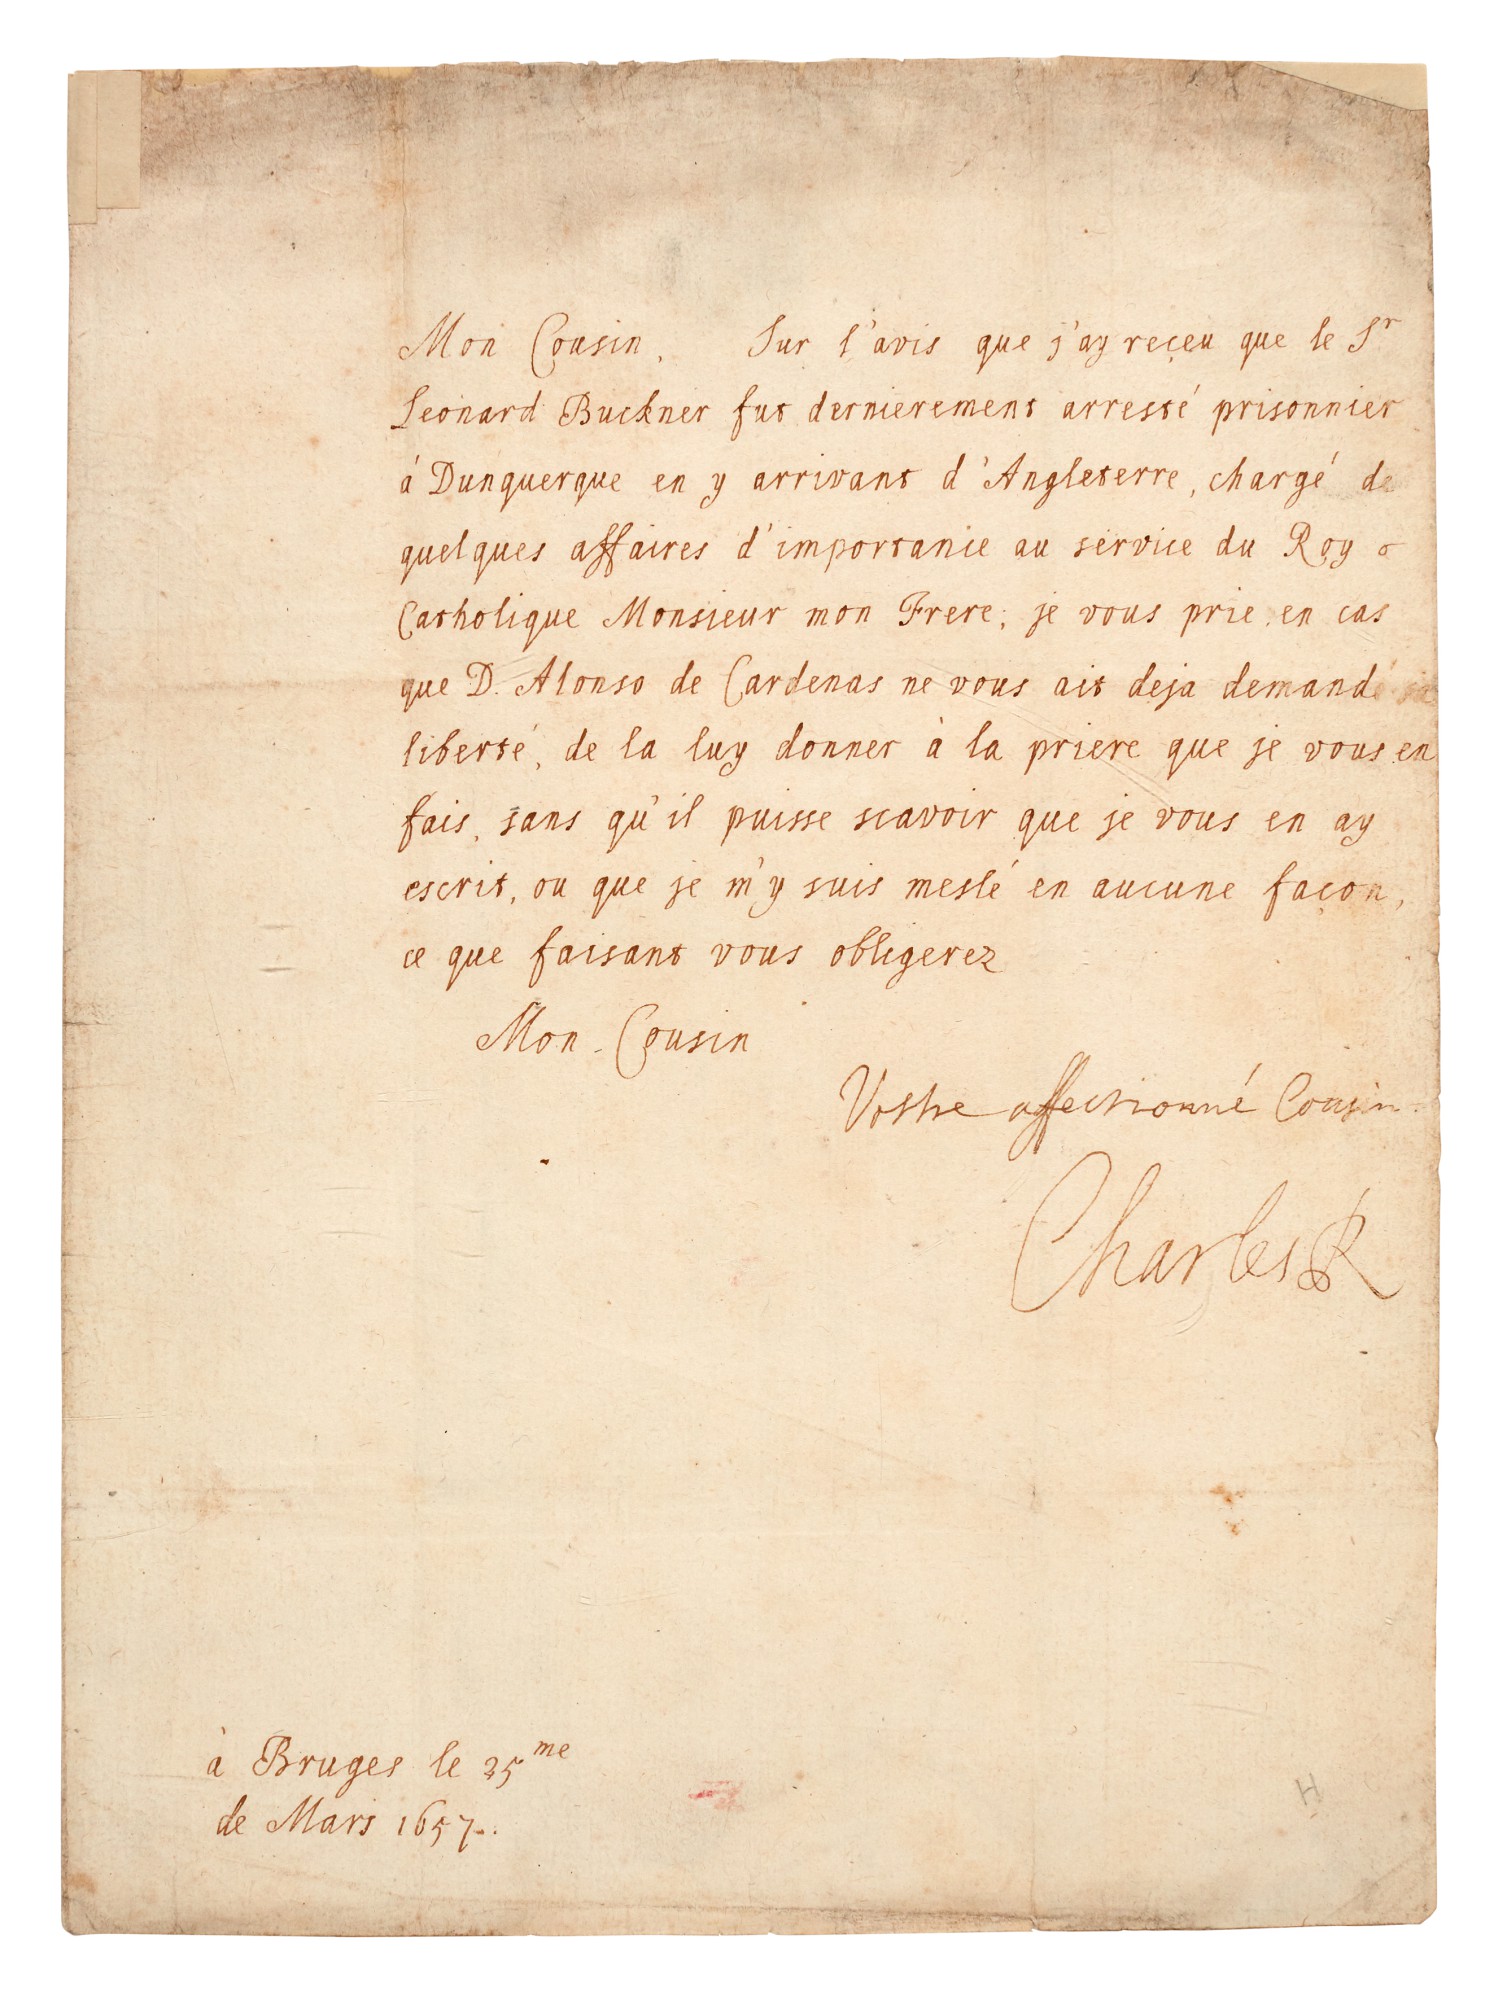 Mon Cousin, Sur l'avis que j'ay reçeu que le Sr
Leonard Buckner fut dernierement arresté prisonnier
à Dunquerque en y arrivant d'Angleterre, chargé de
quelques affaires d'importance au service du Roy
Catholique Monsieur mon Frere; je vous prie, en cas
que D. Alonso de Cardenas ne vous ait deja demandé sa
liberté, de la luy donner à la priere que je vous en
fais, sans qu'il puisse scavoir que je vous en ay
escrit, ou que je m'y suis meslé en aucune façon,
ce que faisant vous obligerez
Mon Cousin
Vostre affectionné Cousin
Charles R
à Bruges le 25me
de Mars 1657.
H